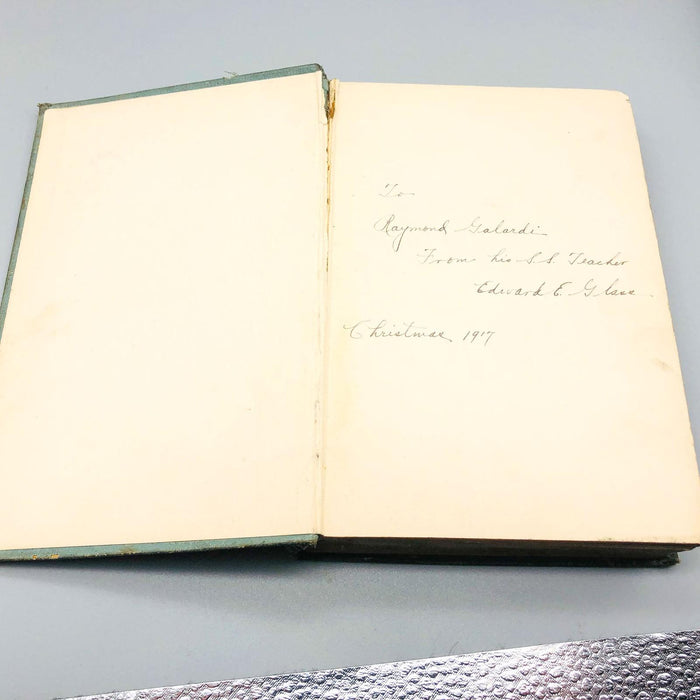 To
Raymond Galardi
From his S.S. Teacher
Edward E. Glass
Christmas 1917